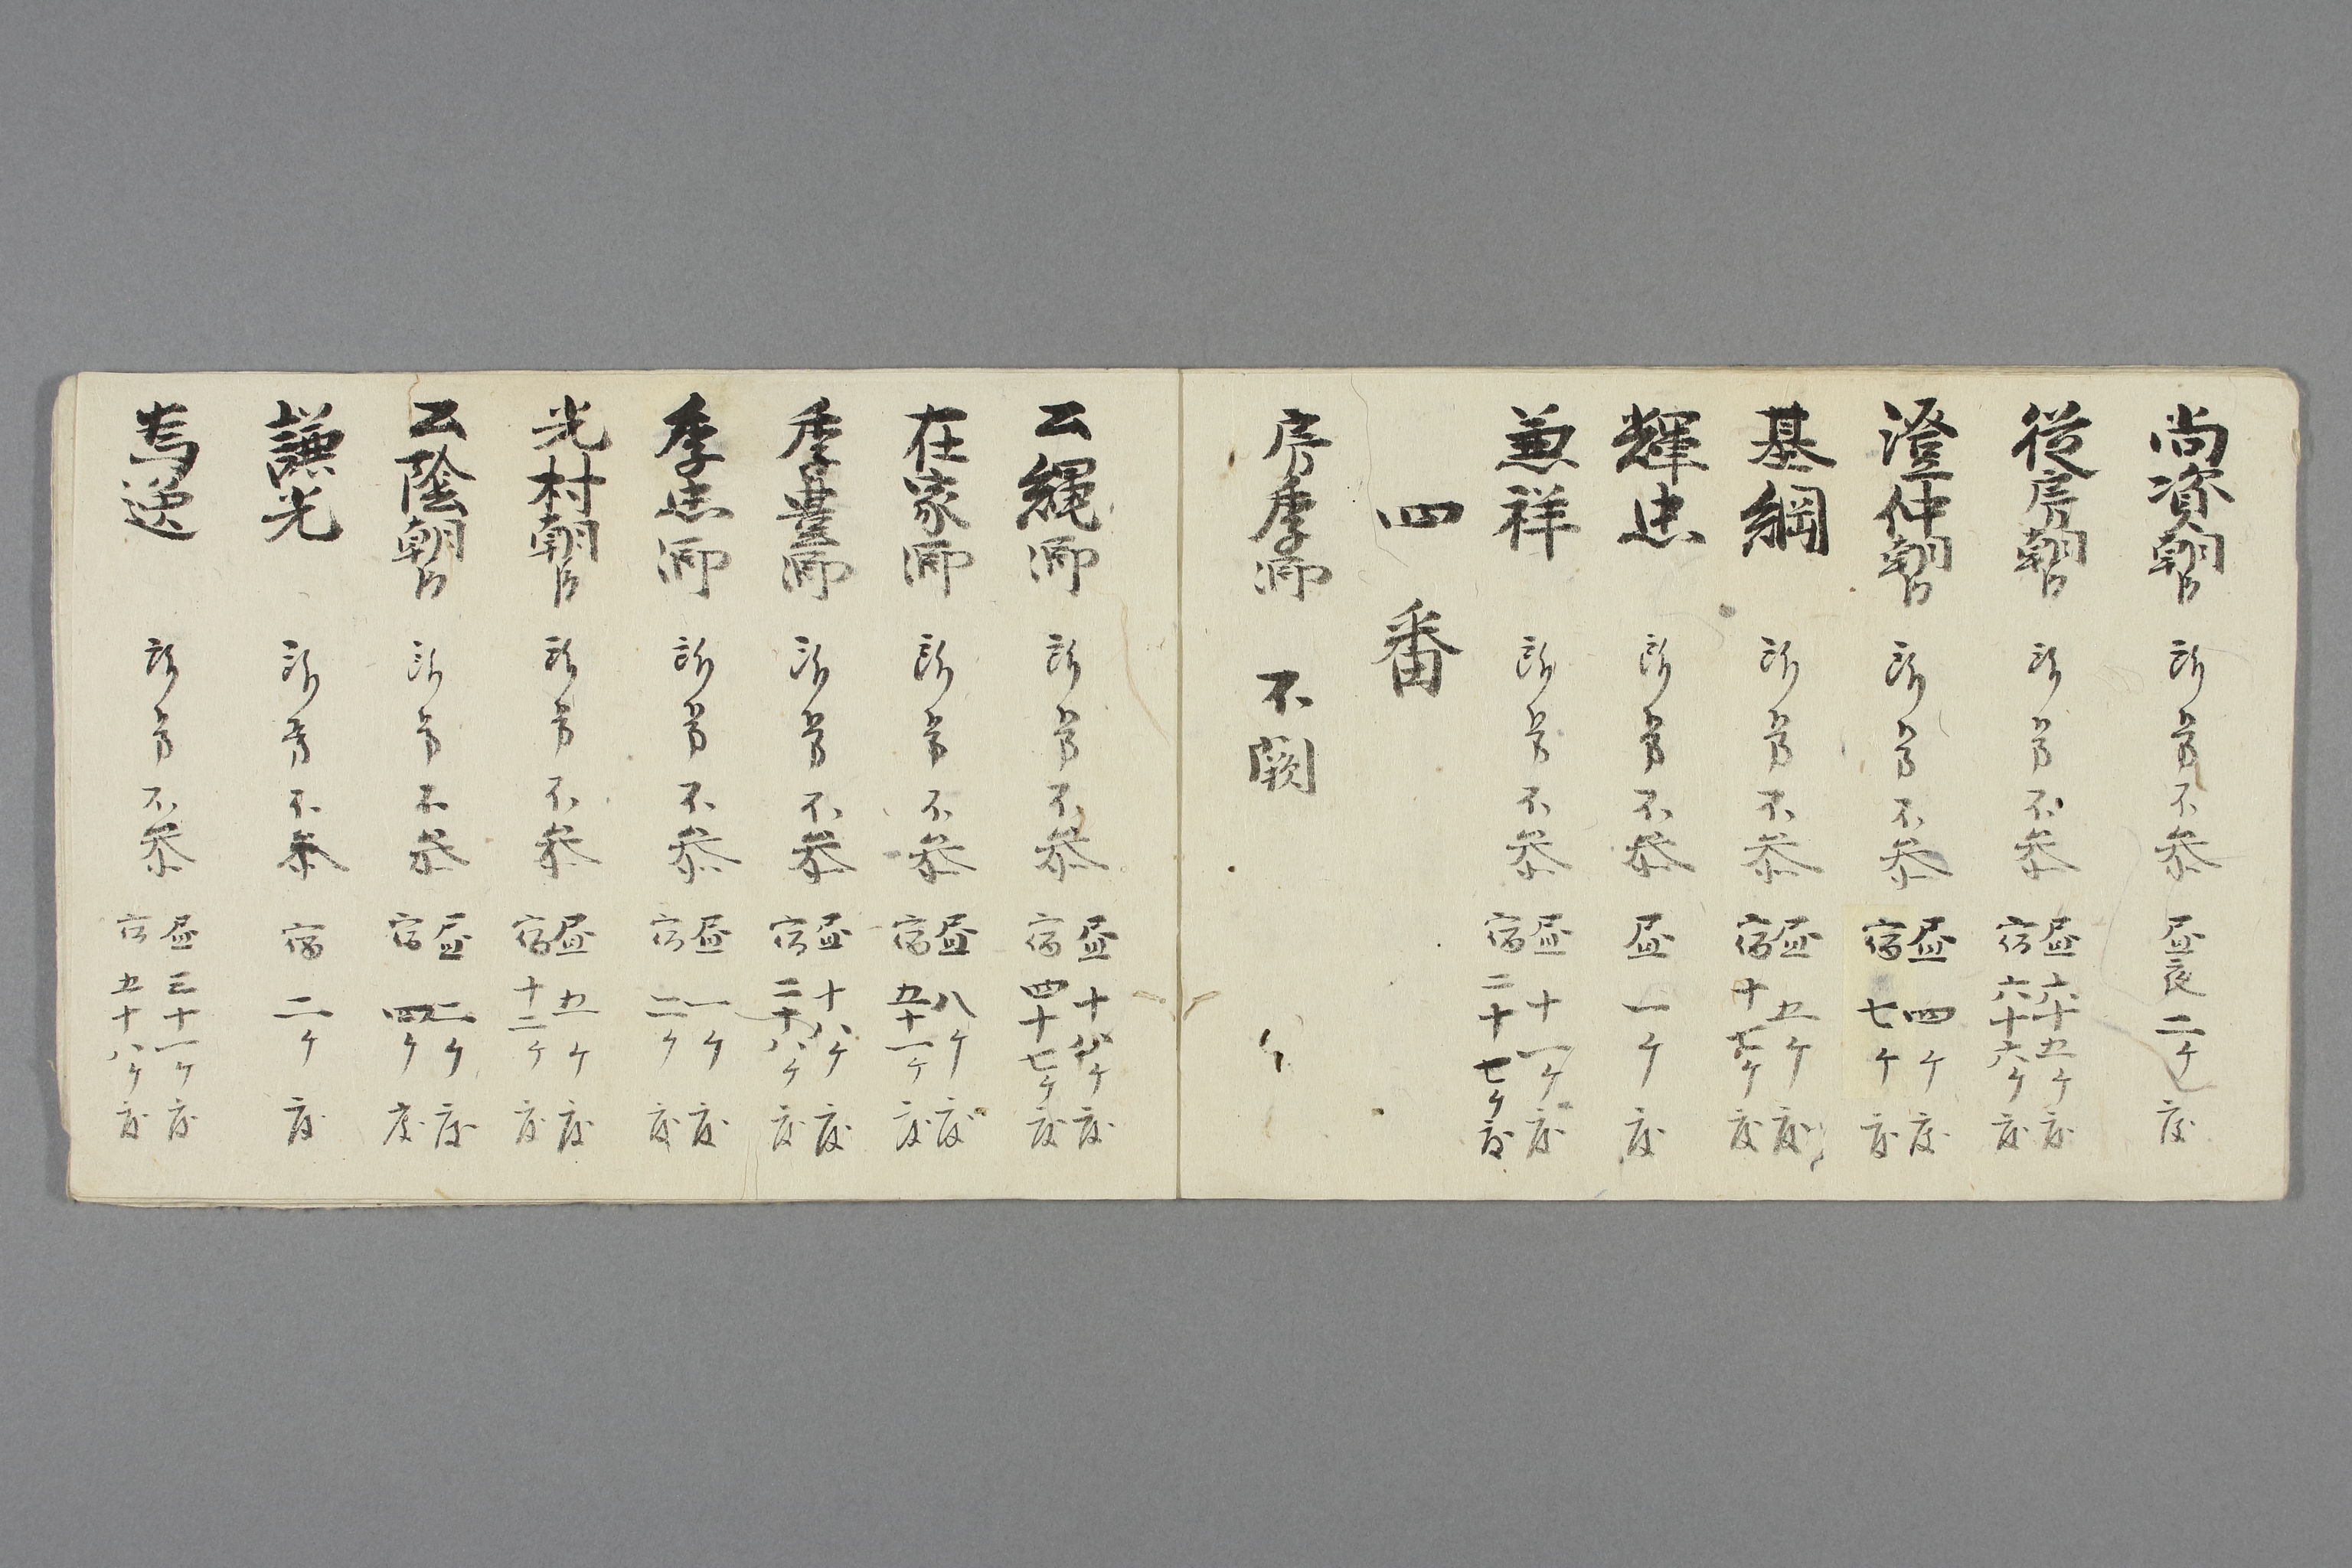 尚資朝臣 所労不参 昼夜二ケ度
従房朝臣 所労不参 昼六十五ケ度
宿六十六ケ度
澄仲朝臣 所労不参 昼四ケ度
宿七ケ度
基綱 所労不参 昼五ケ度
宿十七ケ度
輝忠 所労不参 昼一ケ度
兼祥 所労不参 昼十一ケ度
宿二十七ケ度
四番
房季卿 不闕
公縄卿 所労不参 昼十ケ度
宿四十七ケ度
在家卿 所労不参 昼八ケ度
宿五十一ケ度
季卿 所労不参 昼十八ケ度
宿二十八ケ度
季忠卿 所労不参 昼一ケ度
宿二ケ度
光村朝臣 所労不参 昼五ケ度
宿十二ケ度
公陰朝臣 所労不参 昼二ケ度
宿四ケ度
謙光 所労不参 宿二ケ度
為逸 所労不参 昼三十一ケ度
宿五十八ケ度